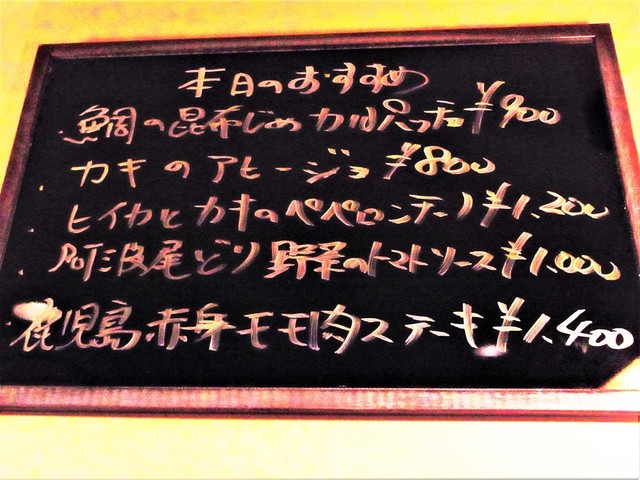 本日のおすすめ
鯛の昆布じめカルパッチョ ¥900
カキのアヒージョ ¥800
ヒイカとカキのペペロンチーノ ¥1.200
阿波尾どり野菜のトマトソース ¥1.000
鹿児島赤身モモ肉ステーキ ¥1.400